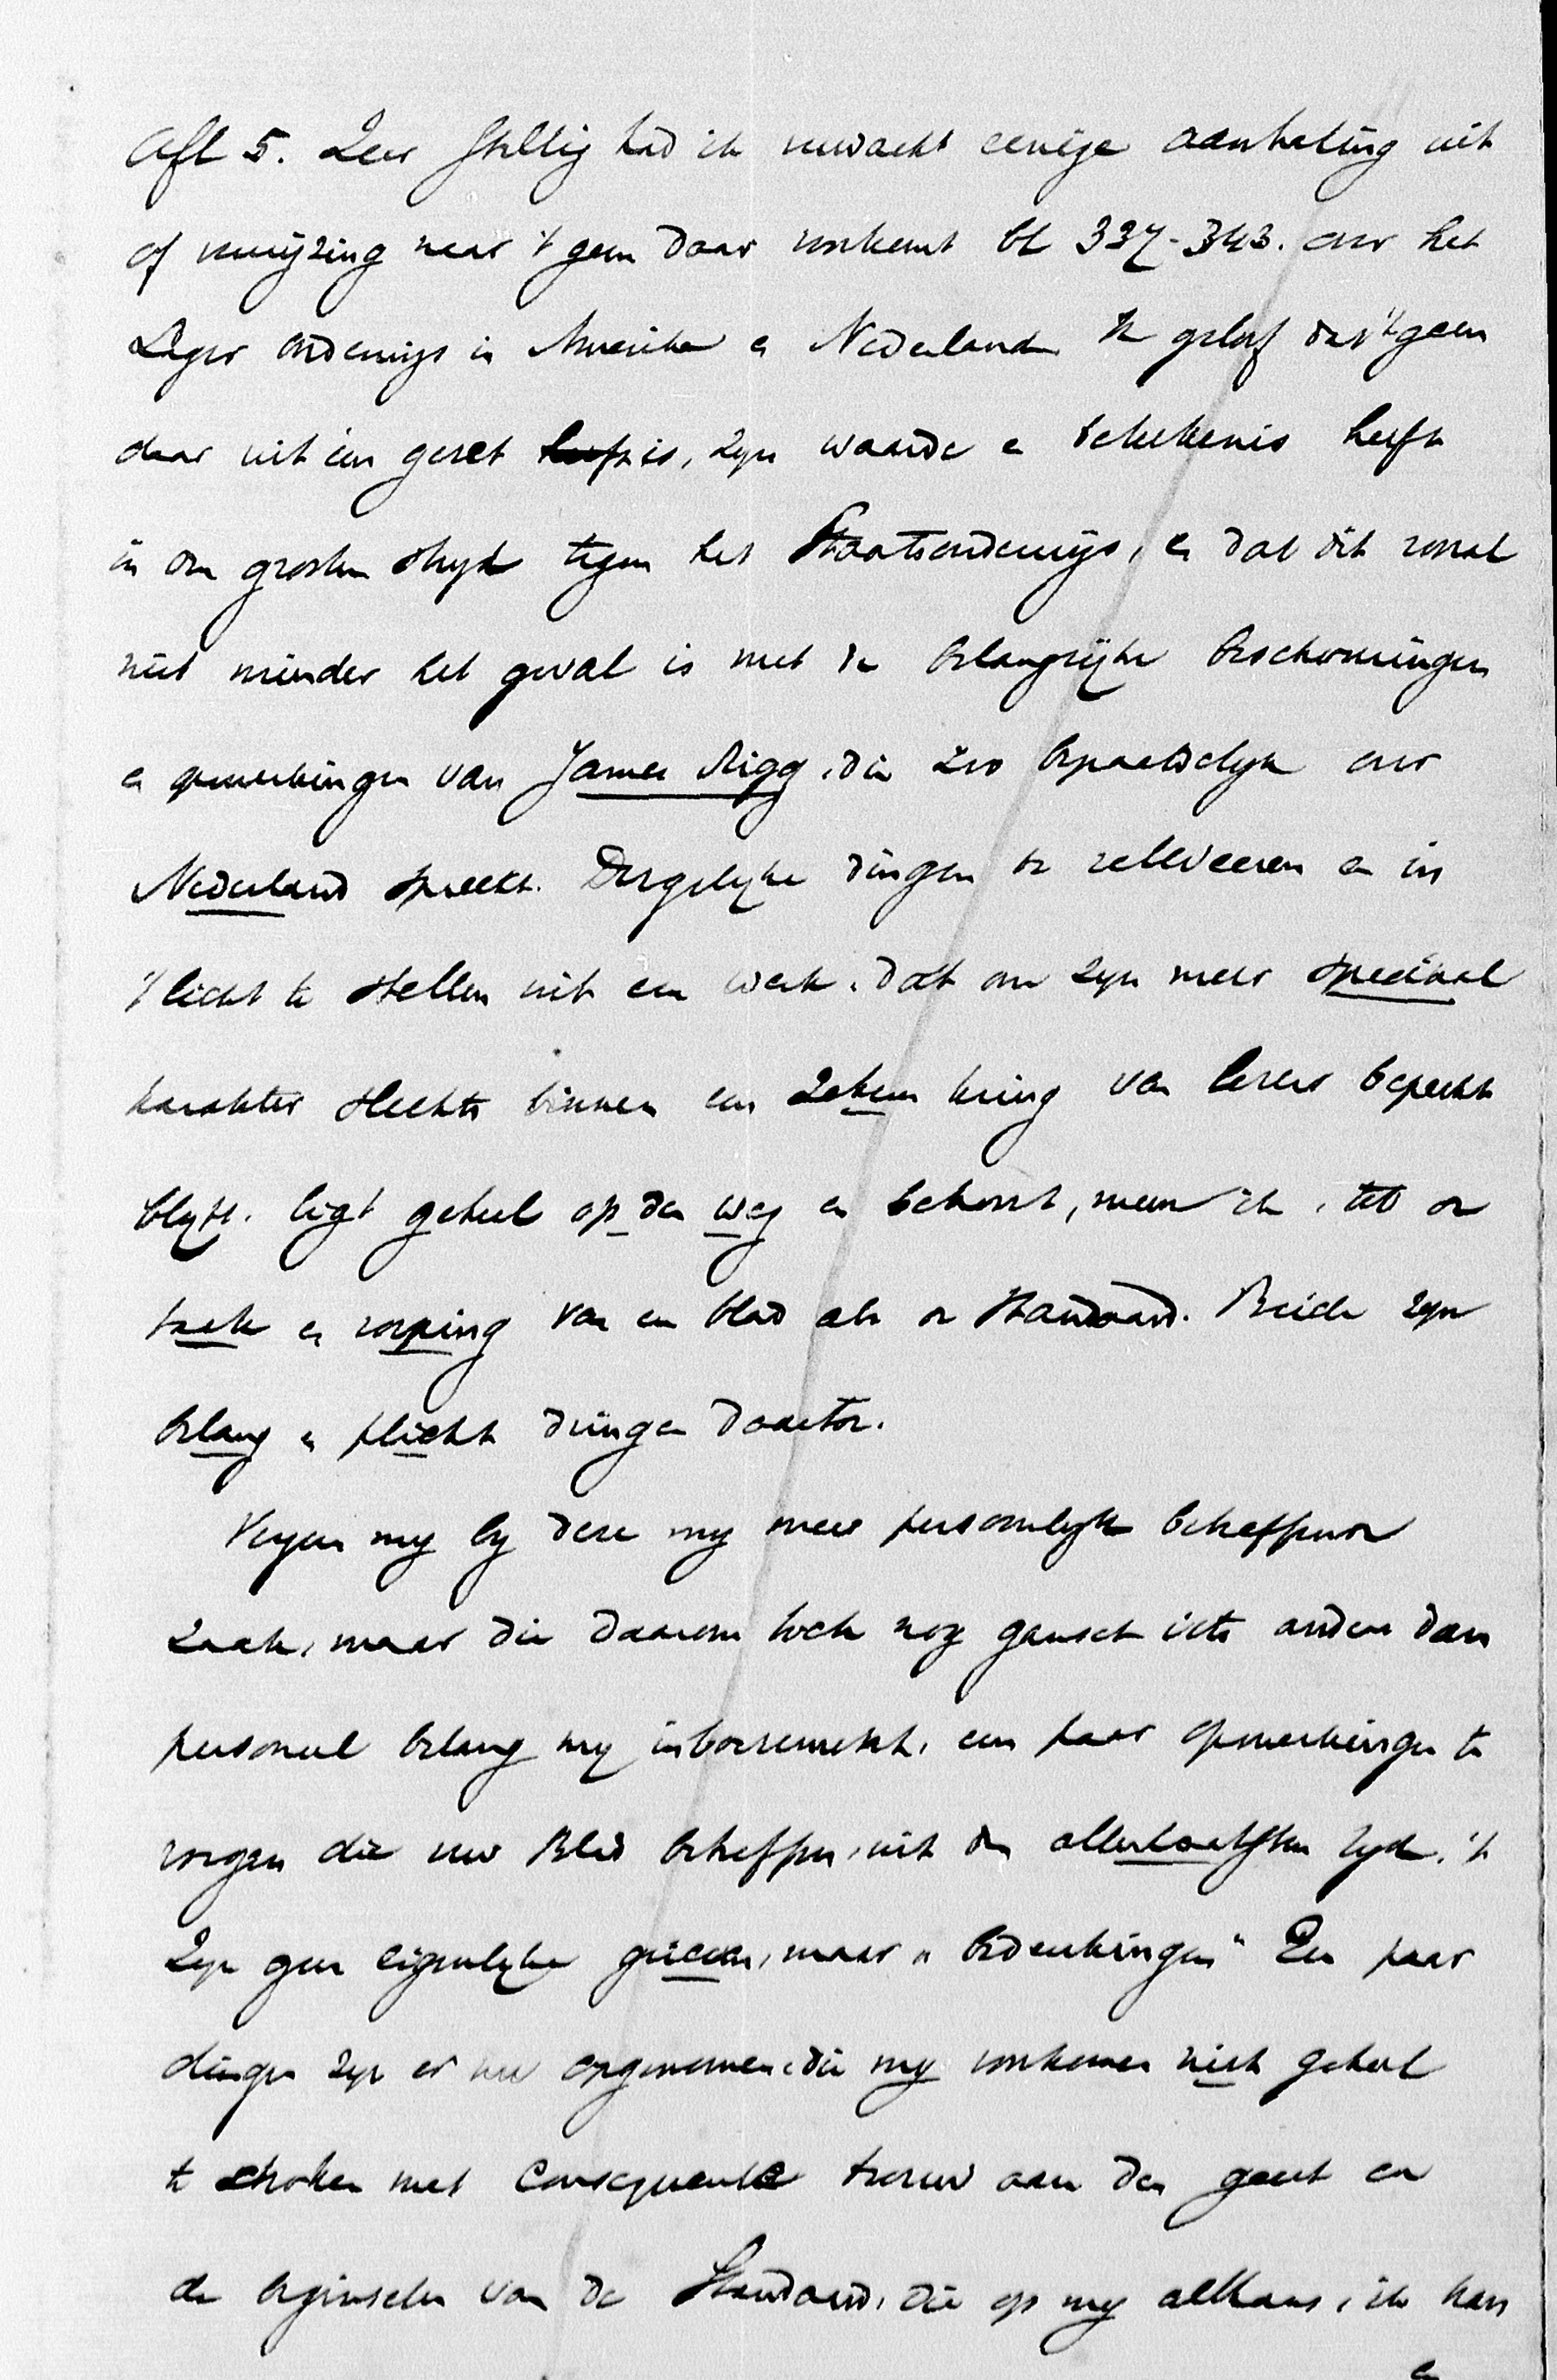 Afl 5. Zeer stellig had ik verwacht eenige aanhaling uit
of verwijzing naar 't geen daar voorkomt bl 337-343. over het
Lager onderwijs in Amerika en Nederland Ik geloof dat 't geen
daar uit één gezet is, zyn waarde en beteekenis heeft
in den grooten stryd tegen het Staatsonderwijs, en dat dit vooral
niet minder het geval is met de belangrijke beschouwingen
en opmerkingen van James Rigg, die zoo bepaaldelyk over
Nederland spreekt. Dergelyke dingen te releveeren en in
't licht te stellen uit een werk, dat om zyn meer speciaal
karakter slechts binnen een zekeren kring van lezers beperkt
blyft, ligt geheel op den weg en behoort, meen ik, tot de
taak en roeping van een blad als de Standaard. Beide zyn
belang en plicht dringen daartoe.
Vergun my by deze my meer persoonlyk betreffende
zaak, maar die daarom toch nog gansch iets anders dan
personeel belang my inboezemt, een paar opmerkingen te
voegen die uw Blad betreffen, uit den allerlaatsten tyd. 't
Zyn geen eigenlyke grieven, maar „bedenkingen" Een paar
dingen zyn er in opgenomen, die my voorkomen niet geheel
te strooken met consequente trouw aan den geest en
de beginselen van de Standaard, die op my althans, ik kan
en